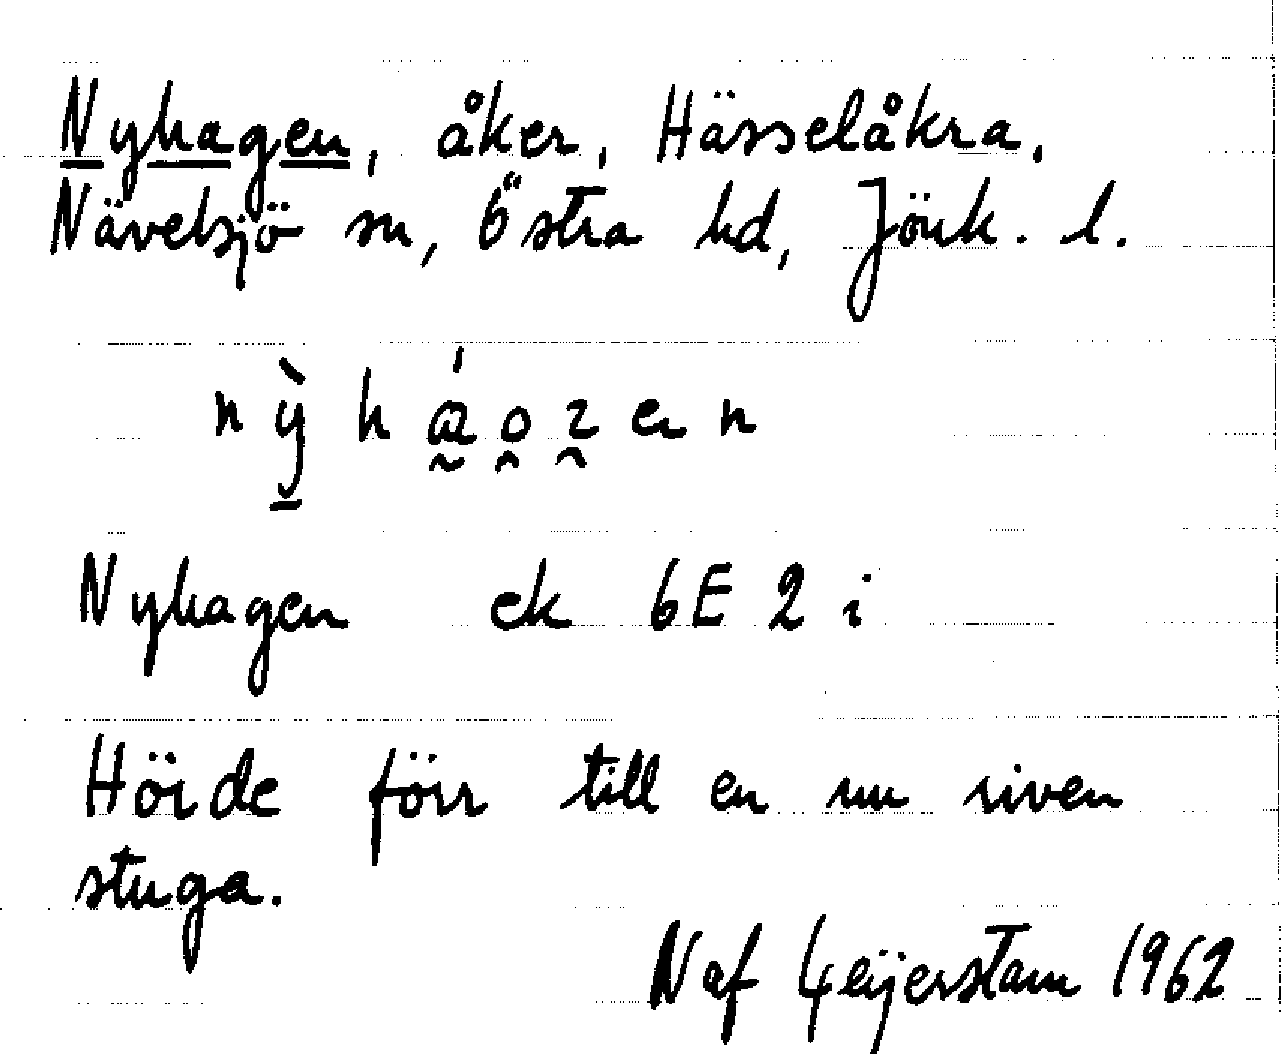 Nyhagen, åker, Hässelåkra,
Nävelsjö sn, Östra hd, Jönk. l.
Nyhagen ek 6E 2 i
Hörde förr till en nu riven
stuga.
N af Geijerstam 1962